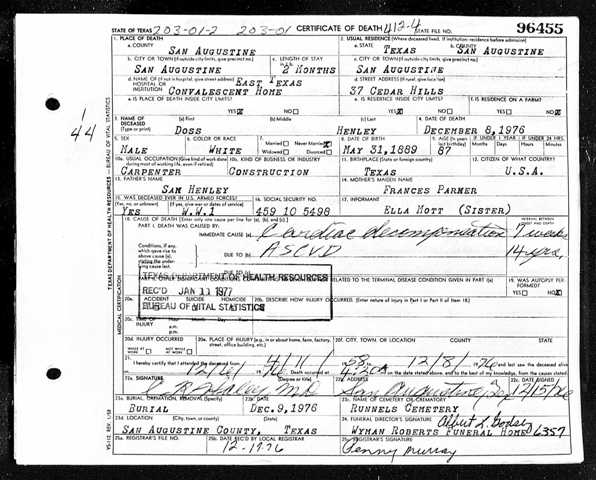 STATE OF TEXAS 203-01-2 203-01 CERTIFICATE OF DEATH 412-4 STATE FILE NO. 96455
1. PLACE OF DEATH 2. USUAL RESIDENCE (Where deceased lived. If institution: residence before admission)
a. COUNTY SAN AUGUSTINE a. STATE TEXAS b. COUNTY SAN AUGUSTINE
b. CITY OR TOWN (If outside city limits, give precinct no.) c. LENGTH OF STAY c. CITY OR TOWN (If outside city limits, give precinct no.)
SAN AUGUSTINE 2 MONTHS SAN AUGUSTINE
d. NAME OF (If not in hospital, give street address) HOSPITAL OR INSTITUTION EAST TEXAS CONVALESCENT HOME d. STREET ADDRESS (If rural, give location) 37 CEDAR HILLS
e. IS PLACE OF DEATH INSIDE CITY LIMITS? e. IS RESIDENCE INSIDE CITY LIMITS? f. IS RESIDENCE ON A FARM?
YES X NO YES X NO YES NO X
3. NAME OF DECEASED (Type or print) (a) First (b) Middle (c) Last 4. DATE OF DEATH
DOSS HENLEY DECEMBER 8, 1976
5. SEX 6. COLOR OR RACE 7. Married Never Married X Widowed Divorced 8. DATE OF BIRTH 9. AGE IF UNDER 1 YEAR IF UNDER 24 HRS.
MALE WHITE MAY 31, 1889 87 Months Days Hours Minutes
10a. USUAL OCCUPATION (Give kind of work done during most of working life, even if retired) 10b. KIND OF BUSINESS OR INDUSTRY 11. BIRTHPLACE (State or foreign country) 12. CITIZEN OF WHAT COUNTRY?
CARPENTER CONSTRUCTION TEXAS U.S.A.
13. FATHER'S NAME 14. MOTHER'S MAIDEN NAME
SAM HENLEY FRANCES PARMER
15. WAS DECEASED EVER IN U.S. ARMED FORCES? 16. SOCIAL SECURITY NO. 17. INFORMANT
(Yes, no, or unknown) (If yes, give war or dates of service)
YES W.W.I 459 10 5498 ELLA MOTT (SISTER)
18. CAUSE OF DEATH (Enter only one cause per line for (a), (b), and (c).) INTERVAL BETWEEN ONSET AND DEATH
PART I. DEATH WAS CAUSED BY:
IMMEDIATE CAUSE (a) Cardiac decompensation 7 weeks
Conditions, if any, which gave rise to above cause (a), stating the underlying cause last. DUE TO (b) ASCVD 14 yrs.
DUE TO (c)
RELATED TO THE TERMINAL DISEASE CONDITION GIVEN IN PART I(a) 19. WAS AUTOPSY PERFORMED?
YES NO X
TEXAS DEPARTMENT OF HEALTH RESOURCES
REC'D JAN 11 1977
BUREAU OF VITAL STATISTICS
20a. ACCIDENT SUICIDE HOMICIDE 20b. DESCRIBE HOW INJURY OCCURRED. (Enter nature of injury in Part I or Part II of item 18.)
20c. TIME OF INJURY Hour Month Day Year a.m. p.m.
20d. INJURY OCCURRED WHILE AT WORK NOT WHILE AT WORK 20e. PLACE OF INJURY (e.g., in or about home, farm, factory, street, office building, etc.) 20f. CITY, TOWN, OR LOCATION COUNTY STATE
21. I hereby certify that I attended the deceased from 4/11/58 12/8/76 and last saw the deceased alive
Death occurred at 4:20 on the date stated above, and to the best of my knowledge, from the causes stated.
22a. SIGNATURE (Degree or title) 22b. ADDRESS 22c. DATE SIGNED
MD San Augustine, 12/15/76
23a. BURIAL, CREMATION, REMOVAL (Specify) 23b. DATE 23c. NAME OF CEMETERY OR CREMATORY
BURIAL DEC. 9, 1976 RUNNELS CEMETERY
23d. LOCATION (City, town, or county) (State) 24. FUNERAL DIRECTOR'S SIGNATURE
SAN AUGUSTINE COUNTY, TEXAS WYMAN ROBERTS FUNERAL HOME 6357
25a. REGISTRAR'S FILE NO. 25b. DATE REC'D BY LOCAL REGISTRAR 25c. REGISTRAR'S SIGNATURE
Penny Murray
1/44
TEXAS DEPARTMENT OF HEALTH RESOURCES - BUREAU OF VITAL STATISTICS
MEDICAL CERTIFICATION